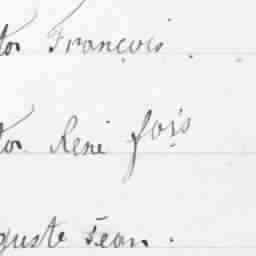 tor François.
tor René fois
guste Jean.